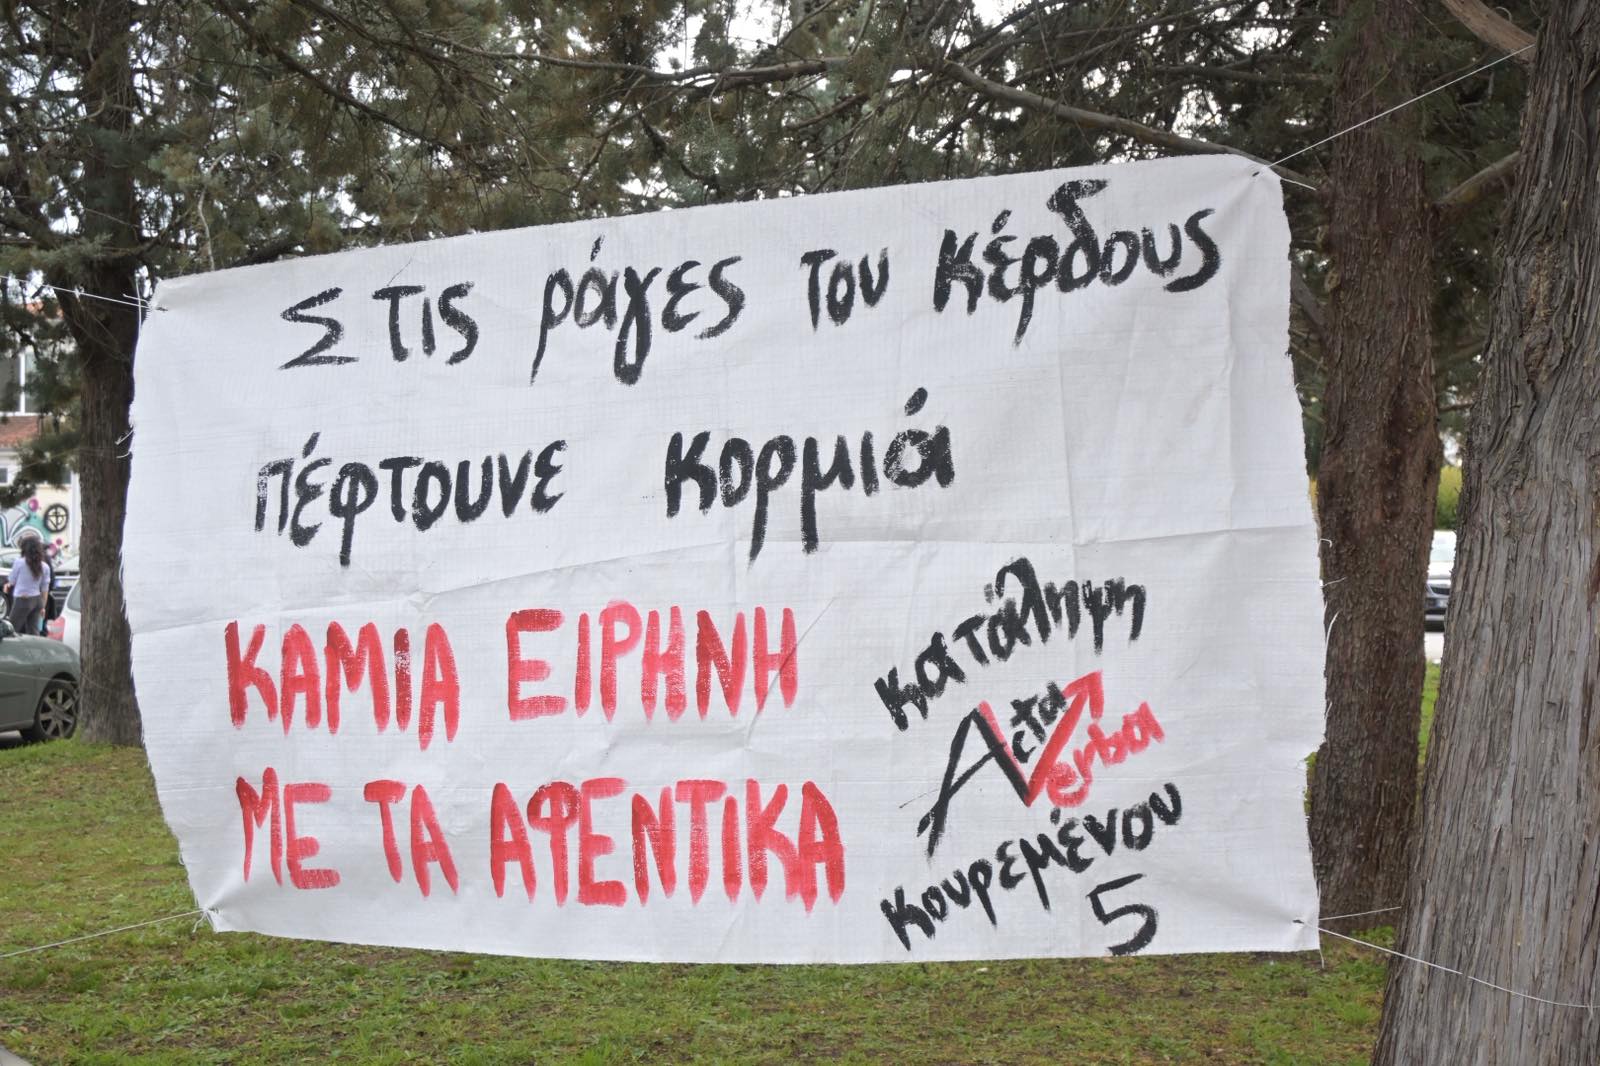 Στις ράγες του κέρδους
πέφτουνε κορμιά
ΚΑΜΙΑ ΕΙΡΗΝΗ
ΜΕ ΤΑ ΑΦΕΝΤΙΚΑ
κατάληψη
Acta
Verba
κουρεμένου
5